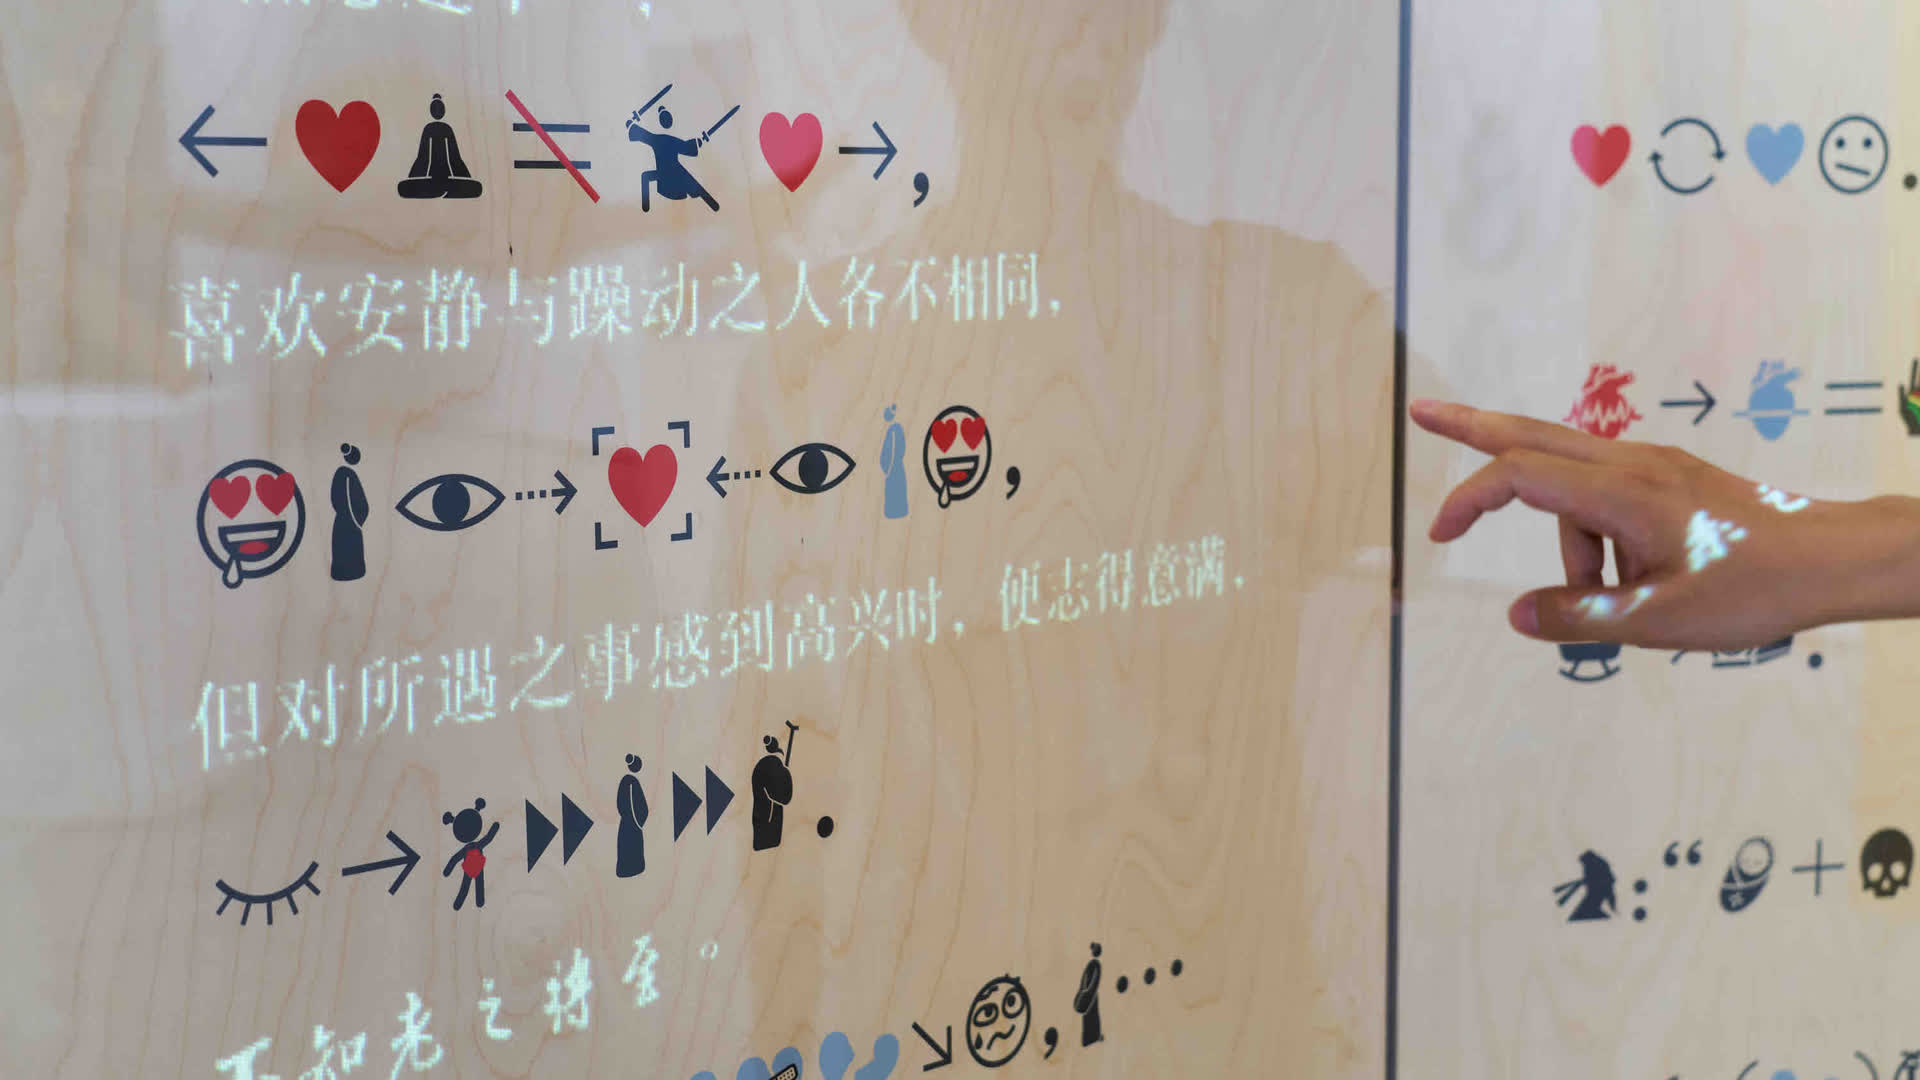 喜欢安静与躁动之人各不相同,
但对所遇之事感到高兴时,便志得意满,
不知老之将至。